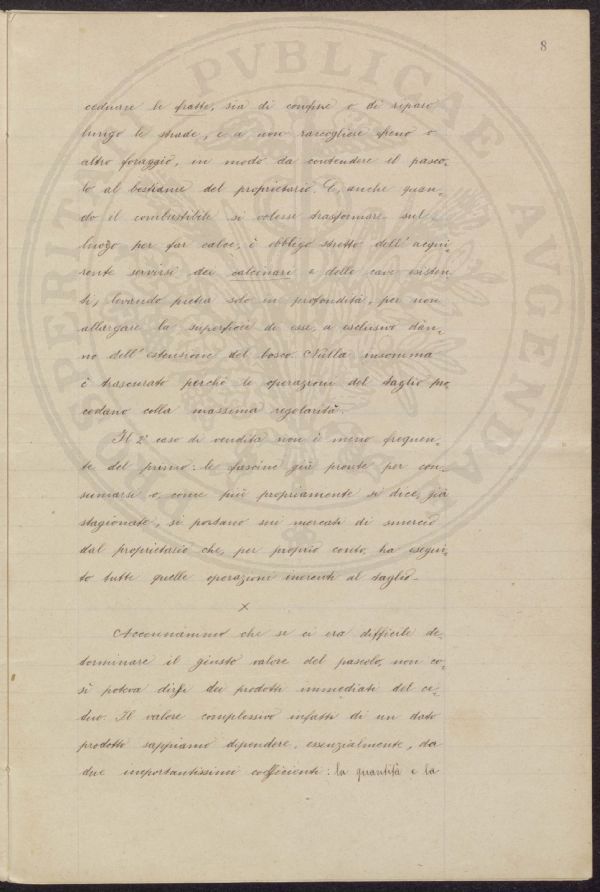 8
PROSPERITATI PVBLICAE AVGENDAE
ceduare le fratte, sia di confine o di riparo
lungo le strade, e a non raccogliere fieno o
altro foraggio, in modo da contendere il pasco-
lo al bestiame del proprietario. E, anche quan-
do il combustibile si volesse trasformare sul
luogo per far calce, è obbligo stretto dell'acqui-
rente servirsi dei calcinari e delle cave esisten
ti, levando pietra solo in profondità, per non
allargare la superficie di esse, a esclusivo dan-
no dell'estensione del bosco. Nulla insomma
è trascurato perché le operazioni del taglio pro
cedano colla massima regolarità.
Il 2° caso di vendita non è meno frequen-
te del primo: le fascine già pronte per con-
sumarsi o, come più propriamente si dice, già
stagionate, si portano sui mercati di smercio
dal proprietario che, per proprio conto, ha esegui-
to tutte quelle operazioni inerenti al taglio.
x
Accennammo che se ci era difficile de-
terminare il giusto valore del pascolo, non co-
sì poteva dirsi dei prodotti immediati del ce-
duo. Il valore complessivo infatti di un dato
prodotto sappiamo dipendere, essenzialmente, da
due importantissimi coefficienti: la quantità e la